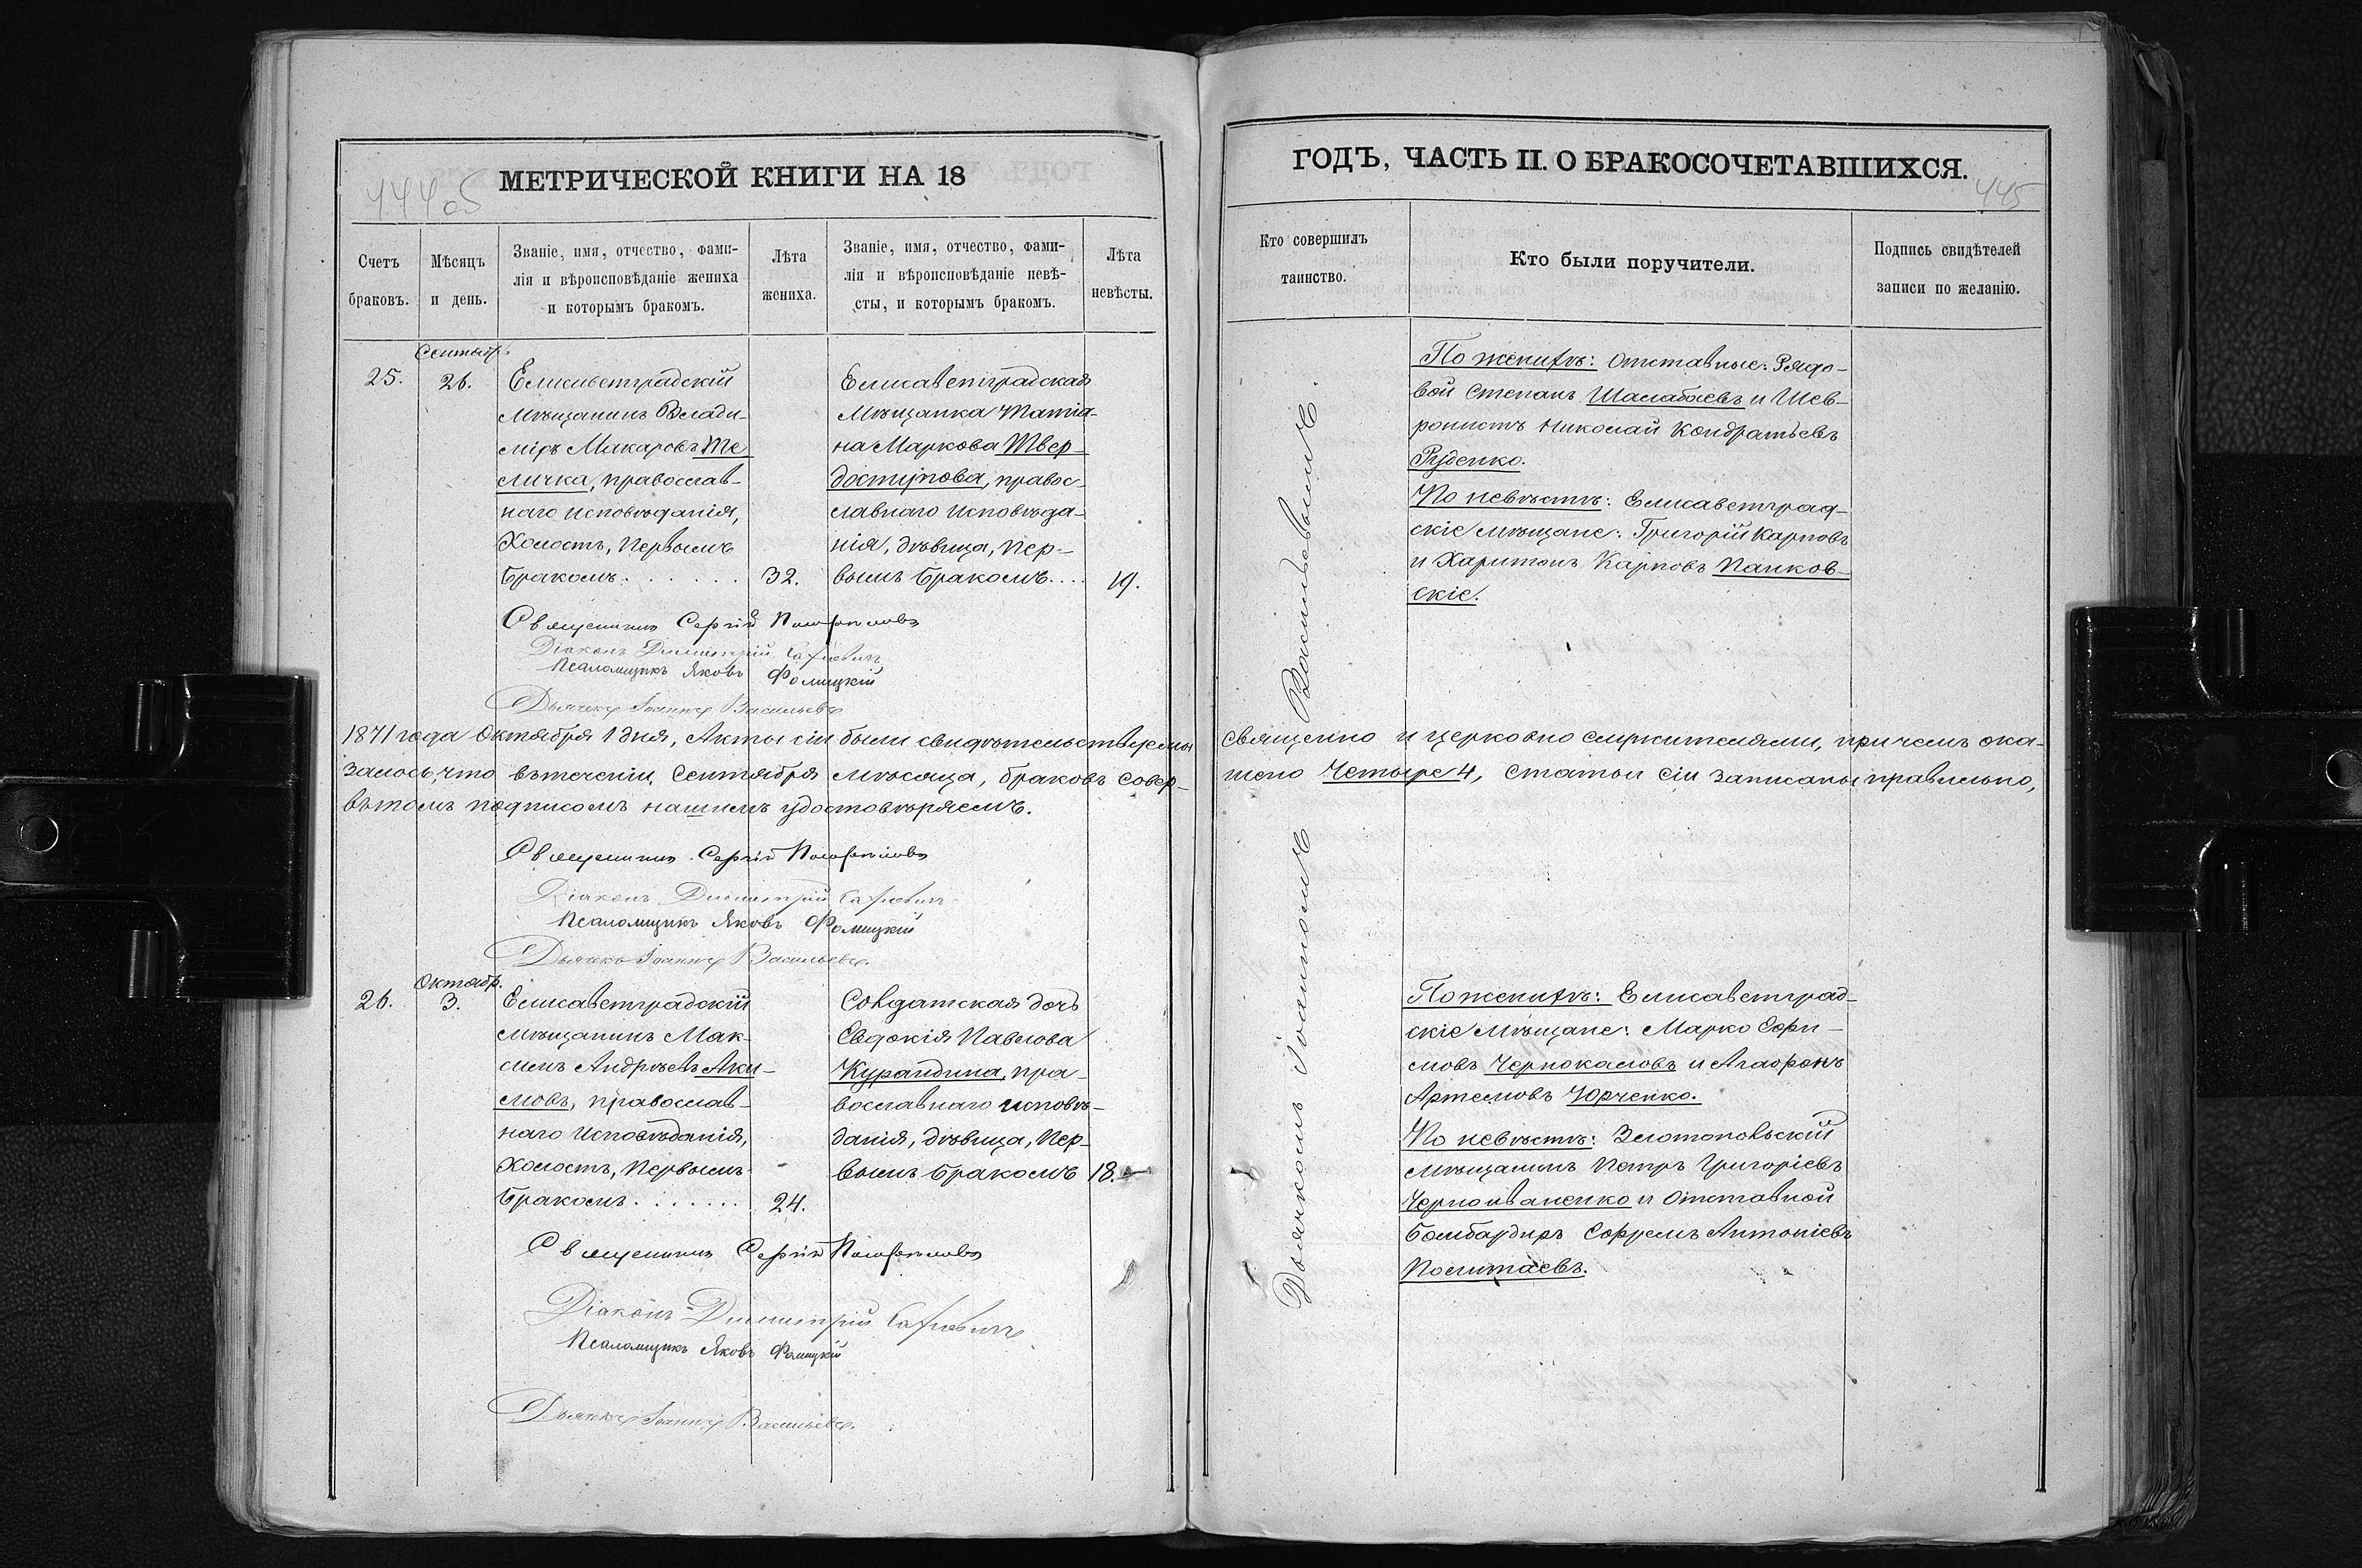 МЕТРИЧЕСКОЙ КНИГИ НА 18
444 об
Счетъ браковъ.
Мѣсяцъ и день.
Званіе, имя, отчество, фами-
лія и вѣроисповѣданіе жениха
и которымъ бракомъ.
Лѣта жениха.
Званіе, имя, отчество, фами-
лія и вѣроисповѣданіе невѣ-
сты, и которымъ бракомъ.
Лѣта невѣсты.
25.
Сентябр.
26.
Елисаветградскій
мѣщанинъ Влади-
миръ Макаровъ Те
личка, православ-
наго исповѣданія,
холостъ, первымъ
бракомъ.......
32.
Елисаветградская
мѣщанка Татіа-
на Маркова Твер-
доступова, правос-
лавнаго исповѣда-
нія, дѣвица, пер-
вымъ бракомъ....
19.
Священникъ Сергій
Діаконъ Димитрій
Псаломщикъ Яковъ Фомицкій
Дьячекъ Іоаннъ Васильевъ
1871 года Октября 1 дня, Акты сіи были свидѣтельствуемы
залось, что въ теченіи Сентября мѣсяца, браковъ совер-
въ томъ подписомъ нашимъ удостовѣряемъ.
Священникъ Сергій
Діаконъ Димитрій
Псаломщикъ Яковъ Фомицкій
Дьячекъ Іоаннъ Васильевъ.
26.
Октябр.
3.
Елисаветградскій
мѣщанинъ Мак-
симъ Андреевъ Аки-
мовъ, православ-
наго исповѣданія,
холостъ, первымъ
бракомъ.......
24.
Солдатская дочь
Евдокія Павлова
Курандина, пра-
вославнаго исповѣ-
данія, дѣвица, пер-
вымъ бракомъ
18.
Священникъ Сергій
Діаконъ Димитрій
Псаломщикъ Яковъ Фомицкій
Дьячекъ Іоаннъ Васильевъ.
ГОДЪ, ЧАСТЬ II. О БРАКОСОЧЕТАВШИХСЯ.
445
Кто совершилъ
таинство.
Кто были поручители.
Подпись свидѣтелей
записи по желанію.
Дьячкомъ Іоанномъ Васильевымъ.
По женихѣ: отставные: Рядо-
вой Степанъ Шалабаевъ и Шев-
ронистъ Николай Кондратьевъ
Руденко.
По невѣстѣ: Елисаветград-
скіе мѣщане: Григорій Карповъ
и Харитонъ Карповъ Панков-
скіе.
священно и церковно служителями, причемъ ока-
шено Четыре 4, статьи сіи записаны правильно,
По женихѣ: Елисаветград-
скіе мѣщане: Марко Ефи-
мовъ Чернокаловъ и Агафонъ
Артемовъ Юрченко.
По невѣстѣ: Золотопольскій
мѣщанинъ Петръ Григоріевъ
Черноиваненко и отставной
Бомбардиръ Антоніевъ